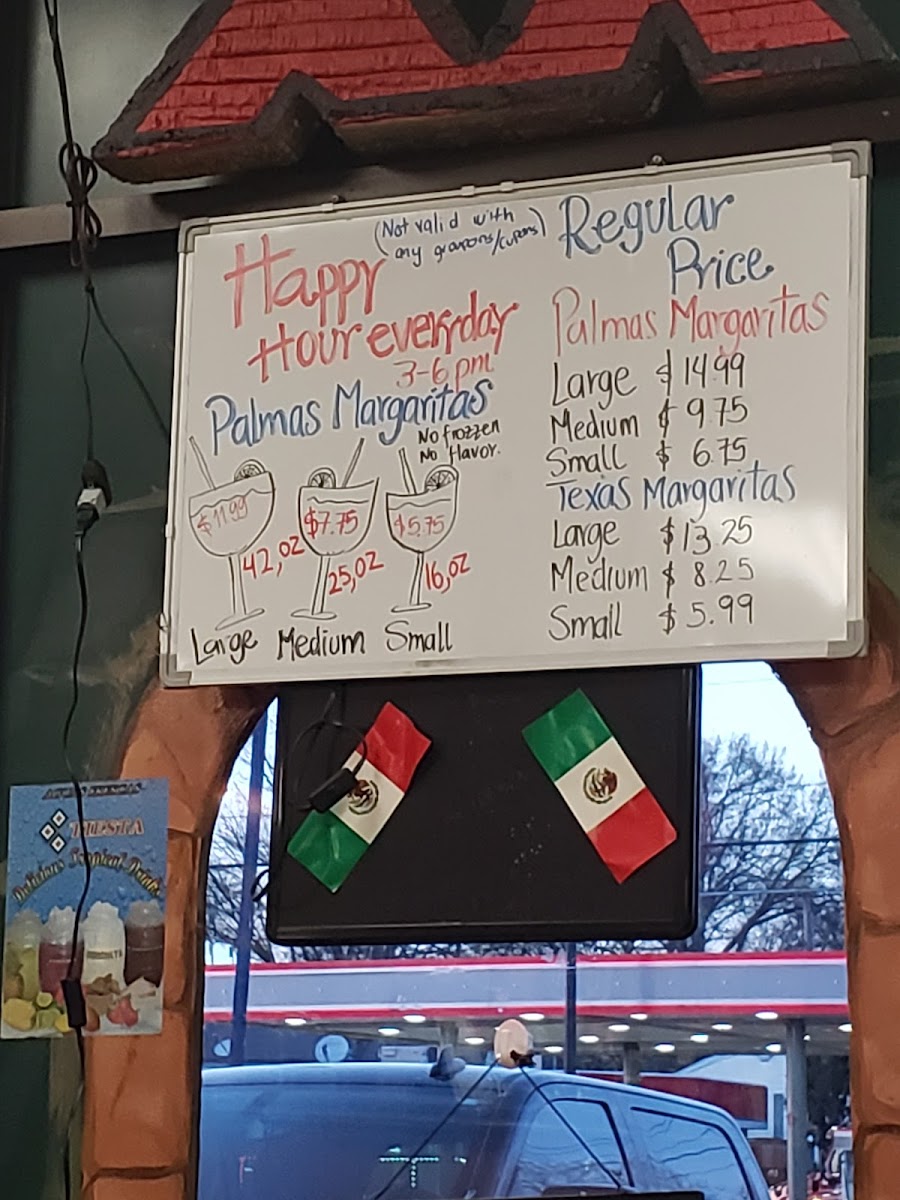 (Not valid with
any groupons/cupons)
Happy
Hour everyday
3-6 pm
Palmas Margaritas
No frozzen
No flavor.
$11.99
$7.75
$5.75
42,oz
25,oz
16,oz
Large Medium Small
Regular
Price
Palmas Margaritas
Large $14.99
Medium $ 9.75
Small $ 6.75
Texas Margaritas
Large $13.25
Medium $ 8.25
Small $5.99
FIESTA
Delicious Tropical